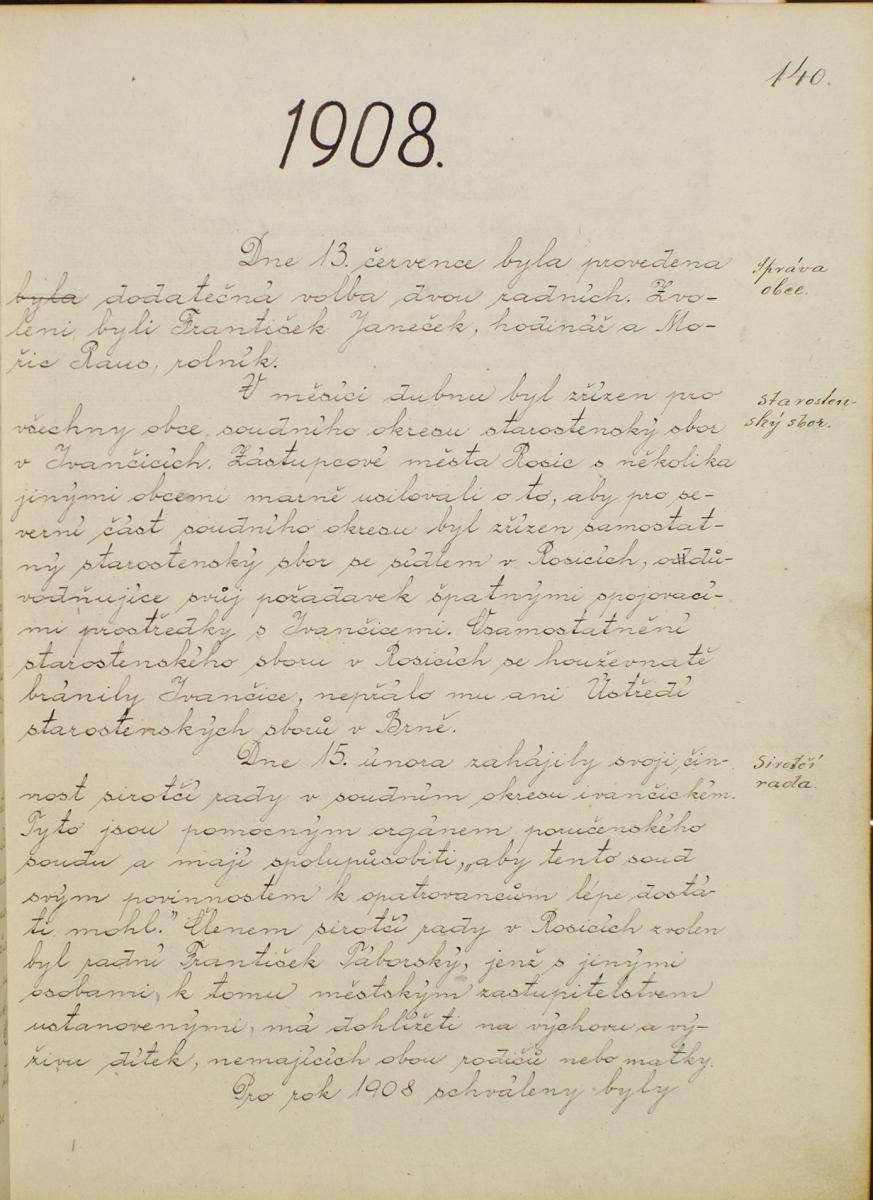 140.
1908.
Dne 13. července byla provedena
byla dodatečná volba dvou radních. Zvo-
leni byli František Janeček, hodinář a Mo-
řic Raus, rolník.
Správa
obce.
V měsíci dubnu byl zřízen pro
všechny obce soudního okresu starostenský sbor
v Ivančicích. Zástupcové města Rosic s několika
jinými obcemi marně usilovali o to, aby pro se-
verní část soudního okresu byl zřízen samostat-
ný starostenský sbor se sídlem v Rosicích, odů-
vodňujíce svůj požadavek špatnými spojovací-
mi prostředky s Ivančicemi. Osamostatnění
starostenského sboru v Rosicích se houževnatě
bránily Ivančice, nepřálo mu ani Ústředí
starostenských sborů v Brně.
starosten-
ský sbor.
Dne 15. února zahájily svoji čin-
nost sirotčí rady v soudním okresu ivančickém.
Tyto jsou pomocným orgánem poručenského
soudu a mají spolupůsobiti, „aby tento soud
svým povinnostem k opatrovancům lépe dostá-
ti mohl.” Členem sirotčí rady v Rosicích zvolen
byl radní František Táborský, jenž s jinými
osobami, k tomu městským zastupitelstvem
ustanovenými, má dohlížeti na výchovu a vý-
živu dítek, nemajících obou rodičů nebo matky.
Sirotčí
rada.
Pro rok 1908 schváleny byly